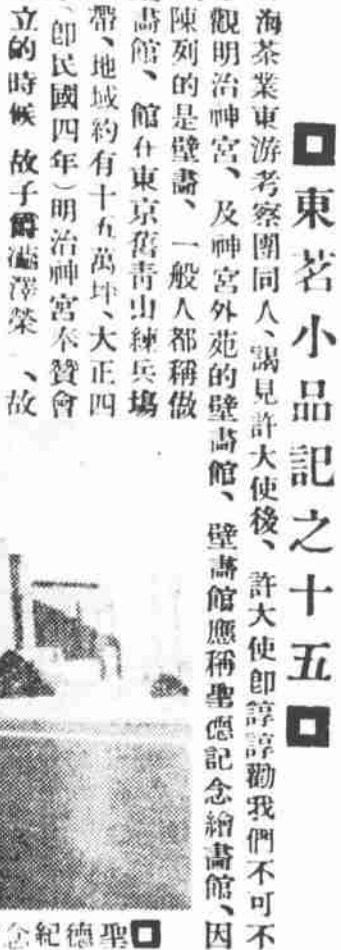 東茗小品記之十五
海茶業東游考察團同人、謁見許大使後、許大使卽諄諄勸我們不可不
觀明治神宮、及神宮外苑的壁畵館、壁畵館應稱聖德記念繪畵館、因
陳列的是壁畵、一般人都稱做
畵館、館在東京舊青山練兵塲
帶、地域約有十五萬坪、大正四
卽民國四年）明治神宮奉贊會
立的時候 故子爵澁澤榮 、故
聖德紀念